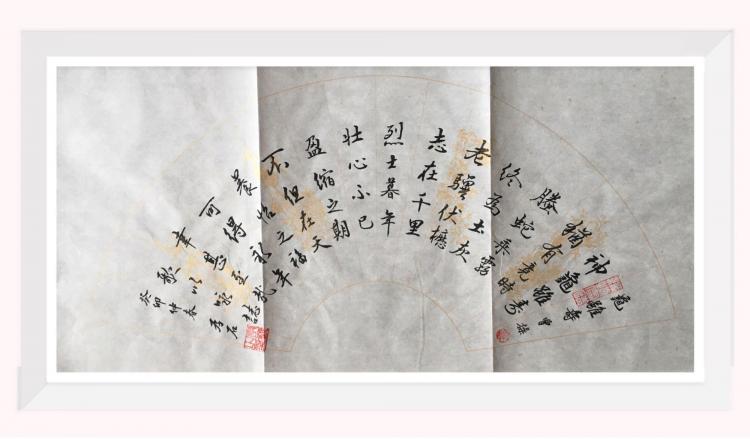 龜雖壽 曹操
神龜雖壽
猶有竟時
螣蛇乘霧
終為土灰
老驥伏櫪
志在千里
烈士暮年
壮心不已
盈縮之期
不但在天
養怡之福
可得永年
幸甚至哉
歌以詠誌
癸卯仲春
石